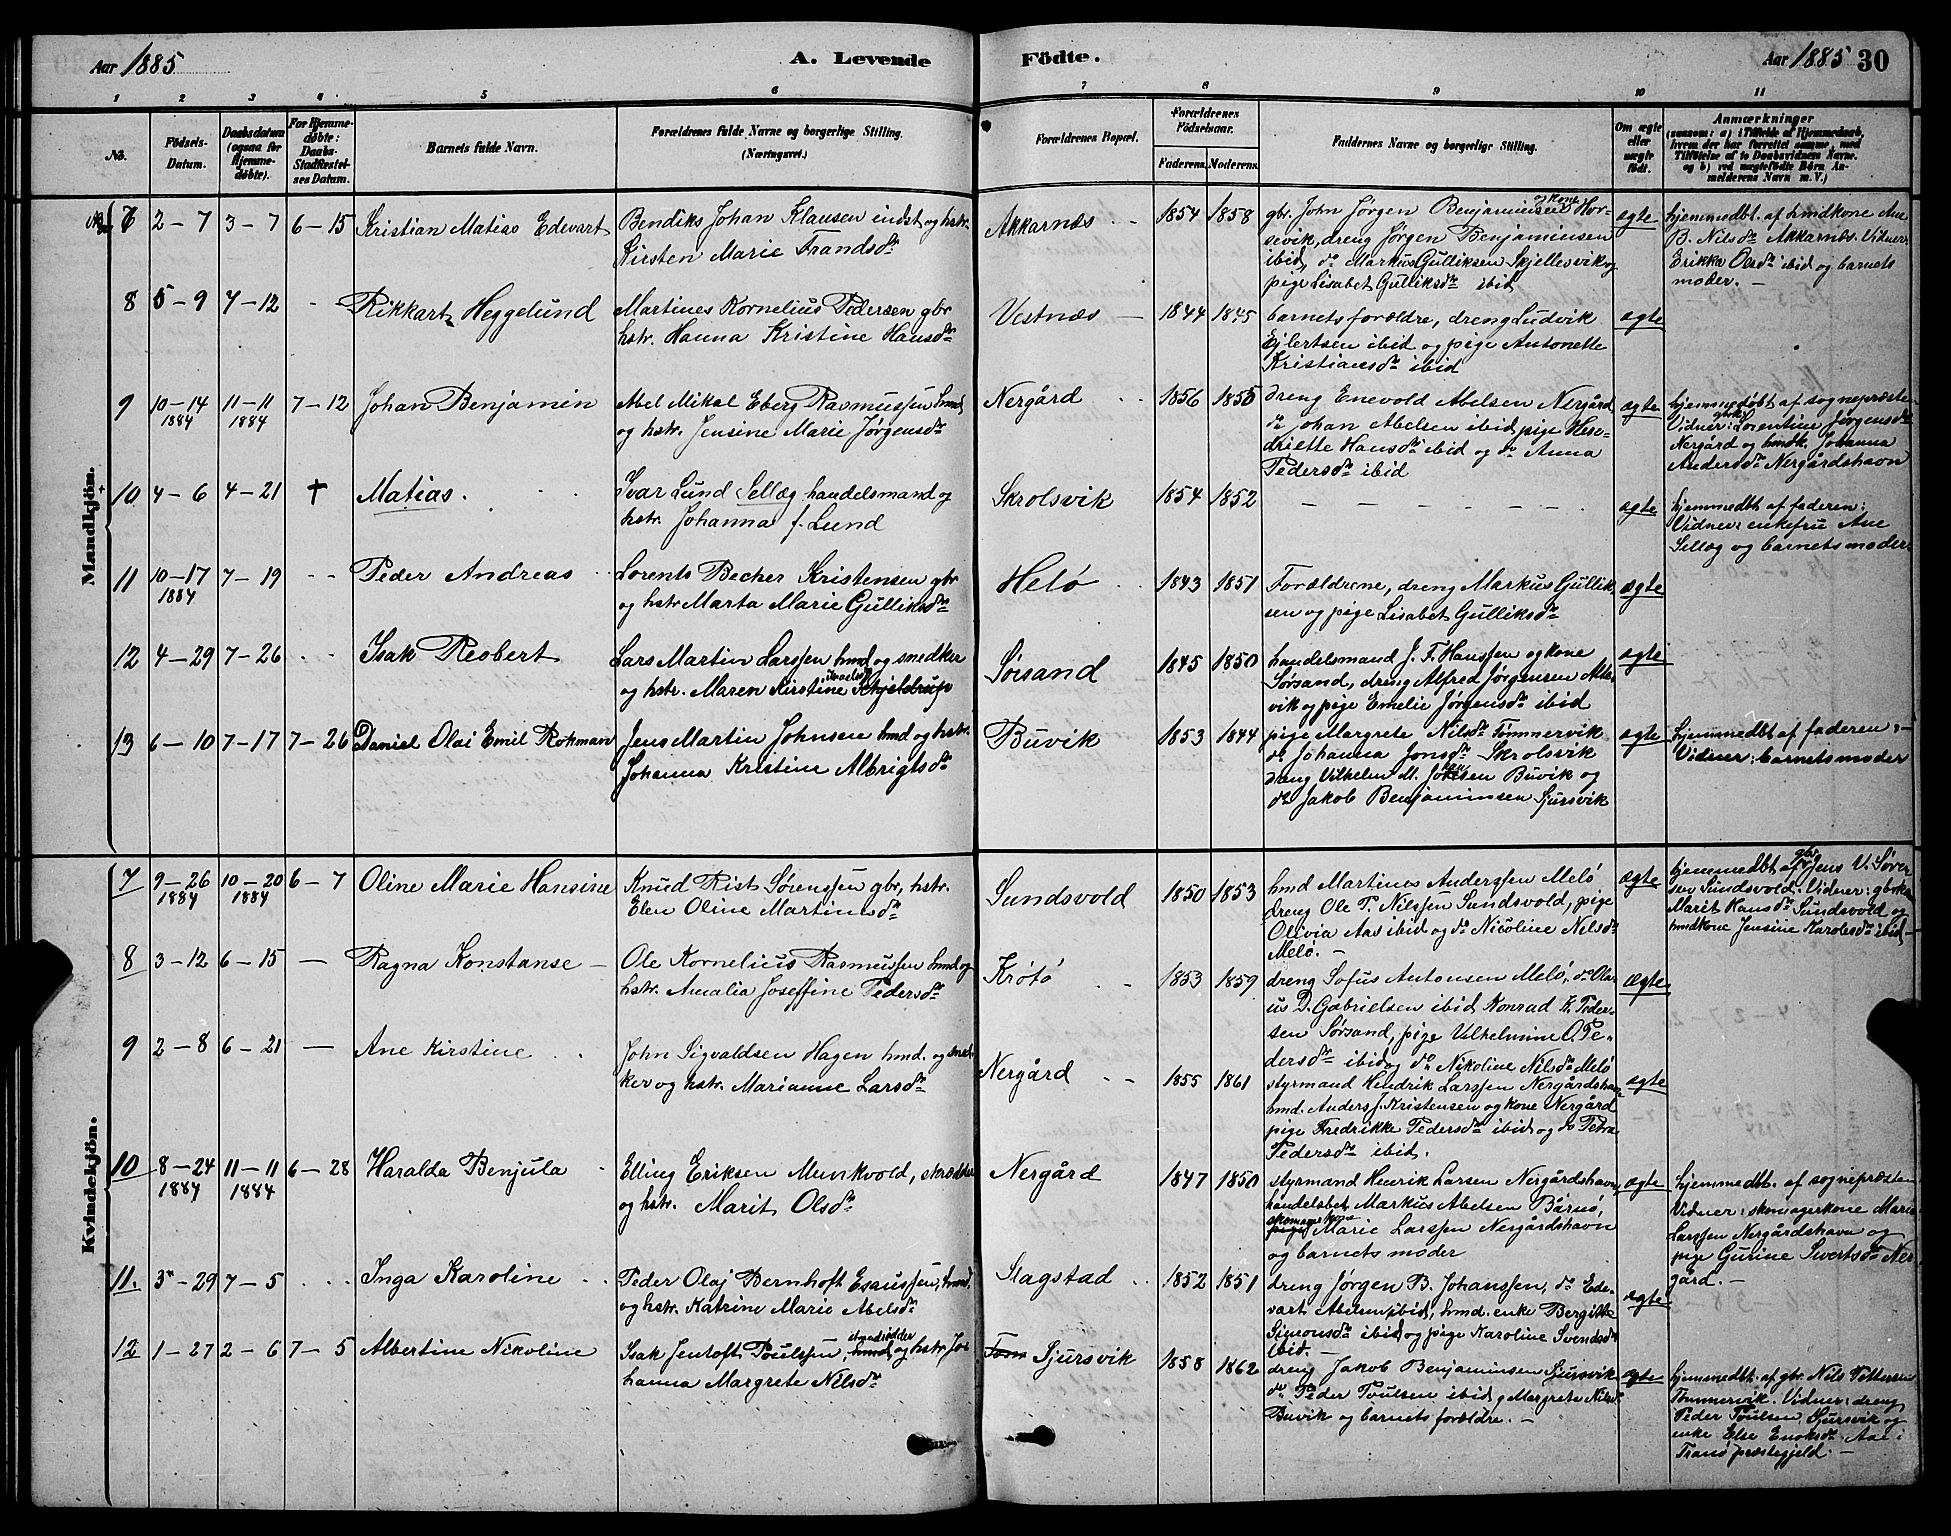 Aar 1885. A. Levende Födte. Aar 1885 30
1 2 3 4 5 6 7 8 9 10 11
No.
Födsels-Datum.
Daabsdatum (ogsaa for Hjemme-døbte).
For Hjemme-døbte: Daabs-Stadfæstel-ses Datum.
Barnets fulde Navn.
Forældrenes fulde Navne og borgerlige Stilling.
(Næringsvei.)
Forældrenes Bopæl.
Forældrenes Födselsaar.
Faderens. Moderens.
Faddernes Navne og borgerlige Stilling.
Om ægte eller uægte født.
Anmærkninger
(saasom: a) i Tilfælde af Hjemmedaab, hvem der har forrettet samme, med Tilføielse af to Daabsvidners Navne. og b) ved uægtefødte Børn An-melderens Navn m. V.)
Mandkjön.
7 2-7 3-7 6-15 Kristian Matias Edevart
Bendiks Johan Klausen indst og hstr.
Kirsten Marie Frandsdr
Akkarnæs 1854 1858
gbr. John Jørgen Benjaminsen og kone Hor-
sevik, dreng Jørgen Benjaminsen
ibid, do Markus Gulliksen Skjellesvik og
pige Lisabet Gulliksdr ibid
ægte
hjemmedbt. af hmdkone Ane
B. Nilsdr Akkarnæs. Vidner:
Erikka Olsdr ibid og barnets
moder. -
8 5-9 7-12 - Rikkart Heggelund
Martines Kornelius Pedersen gbr
hstr. Hanna Kristine Hansdr
Vestnæs - 1844 1845
barnets forældre, dreng Ludvik
Ejlertsen ibid og pige Antonette
Kristiansdr ibid
ægte
9 10-14 1884 11-11 1884 7-12 Johan Benjamin
Abel Mikal Eberg Rasmussen hmd
og hstr. Jensine Marie Jørgensdr
Nergård 1856 1855
dreng Enevold Abelsen Nergård
do Johan Abelsen ibid pige Hen-
driette Hansdr ibid og do Anna
Pedersdr ibid
ægte
hjemmedøbt af sognepræsten
Vidner: Lorentine Jørgensdr
Nergård og hmdk. Johanna
Andersdr Nergårdshavn
10 4-6 4-21 † Matias.
Ivar Lund Sellæg handelsmand og
hstr. Johanna f. Lund
Skrolsvik 1854 1852
- - - - - - -
ægte
hjemmedbt af faderen:
Vidner: enkefru Ane
Sellæg og barnets moder.
11 10-17 1884 7-19 - - Peder Andreas
Lorents Becher Kristensen gbr
og hstr Marta Marie Gulliksdr
Helø 1843 1851
Forældrene, dreng Markus Gullik-
sen og pige Lisabet Gulliksdr
ægte
12 4-29 7-26 - - Isak Robert
Lars Martin Larssen hmd og snedker
og hstr. Maren Kirstine Schjeldrup
Sørsand 1845 1850
handelsmand J. F. Hanssen og kone
Sørsand, dreng Alfred Jørgensen Alte-
vik og pige Emelie Jørgensdr ibid
ægte
13 6-10 7-17 7-26 Daniel Olai Emil Rokman
Jens Martin Johnsen hmd og hstr.
Johanna Kristine Albrigtsdr
Buvik 1853 1844
pige Margrete Nilsdr Tømmervik
do Johanna Jonsdr Skrolsvik
dreng Vilhelm M. Jensen Buvik og
do Jakob Benjaminsen Sjursvik
ægte
hjemmedbt af faderen: -
Vidner: barnets moder
Kvindekjön.
7 9-26 1884 10-20 1884 6-7 Oline Marie Hansine
Knud Rist Sørenssen gbr, hstr.
Elen Oline Martinusdr
Sundsvold 1850 1853
hmd Martines Anderssen Melø
dreng Ole P. Nilssen Sundsvold, pige
Olivia Aas ibid og do Nicoline Nilsdr
Melø. -
ægte
hjemmedbt af gbr Jens V. Søren-
sen Sundsvold. Vidner: gbrkone
Marit Hansdr Sundsvold og
hmdkone Jensine Karolesdr ibid -
8 3-12 6-15 - Ragna Konstanse -
Ole Kornelius Rasmussen hmd og
hstr. Amalia Joseffine Pedersdr
Krøtø 1853 1859
dreng Sofus Antonsen Melø, do Ola-
us D. Gabrielsen ibid Konrad K. Peder-
sen Sørsand, pige Vilhelmine O. Pe-
dersdr ibid og do Nikoline Nilsdr Melø
ægte
9 2-8 6-21 - Ane Kirstine
John Sigvaldsen Hagen hmd. og sned-
ker og hstr. Marianne Larsdr
Nergård 1855 1861
styrmand Hendrik Larssen Nergårdshavn
hmd. Anders J. Kristensen og kone Nergård
pige Fredrikke Pedersdr ibid og do Petra
Pedersdr ibid.
ægte
10 8-24 1884 11-11 1884 6-28 Haralda Benjula
Elling Eriksen Munkvold, skrædder
og hstr. Marit Olsdr
Nergård 1847 1850
styrmand Henrik Larsen Nergårdshavn,
handelsbet Markus Abelsen Bårnø,
skomagerkone Marie Larssen Nergårdshavn
og barnets moder
ægte
hjemmedbt. af sognepræsten
Vidner: skomagerkone Marie
Larssen Nergårdshavn og
pige Gurine Sivertsdr Ner-
gård. -
11. 3-29 7-5 - - Inga Karoline
Peder Olaj Bernhoft Esaussen, hmd,
og hstr. Katrine Marie Abelsdr
Slagstad 1852 1851
dreng Jørgen B. Johanssen, do Ede-
vart Abelsen ibid, hmd. enke Bergitte
Simonsdr ibid og pige Karoline Svendsdr
ibid. -
ægte
12 1-27 2-6 7-5 Albertine Nikoline
Isak Jentoft Poulssen, strandsidder og hstr. Jo-
hanna Margrete Nilsdr
Sjursvik 1858 1862
dreng Jakob Benjaminsen Sjursvik
do Peder Poulsen ibid, Margrete Nilsdr
Buvik og barnets forældre. -
ægte
hjemmedbt. af gbr. Nils Pettersen
Tømmervik. Vidner: dreng
Peder Poulsen Sjursvik og
enke Else Enoksdr Aae i
Tranø præstegjeld. -